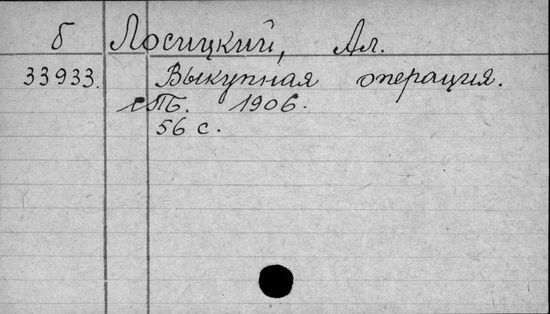 б Лосицкий, Ал.
33933. Выкупная операция.
сПб. 1906.
56 с.